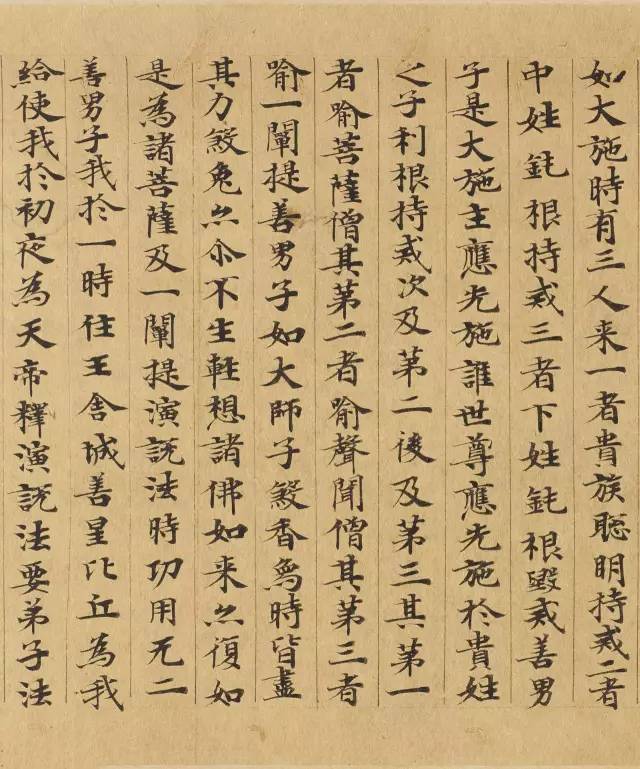 如大施時有三人来一者貴族聡明持戒二者
中姓鈍根持戒三者下姓鈍根毀戒善男
子是大施主應先施誰世尊應先施於貴姓
之子利根持戒次及第二後及第三其第一
者喻菩薩僧其第二者喻聲聞僧其第三者
喻一闡提善男子如大師子煞香為時皆盡
其力煞兔亦不生輕想諸佛如来亦復如
是為諸菩薩及一闡提演說法時功用无二
善男子我於一時住王舍城善星比丘為我
給使我於初夜為天帝釋演說法要弟子法